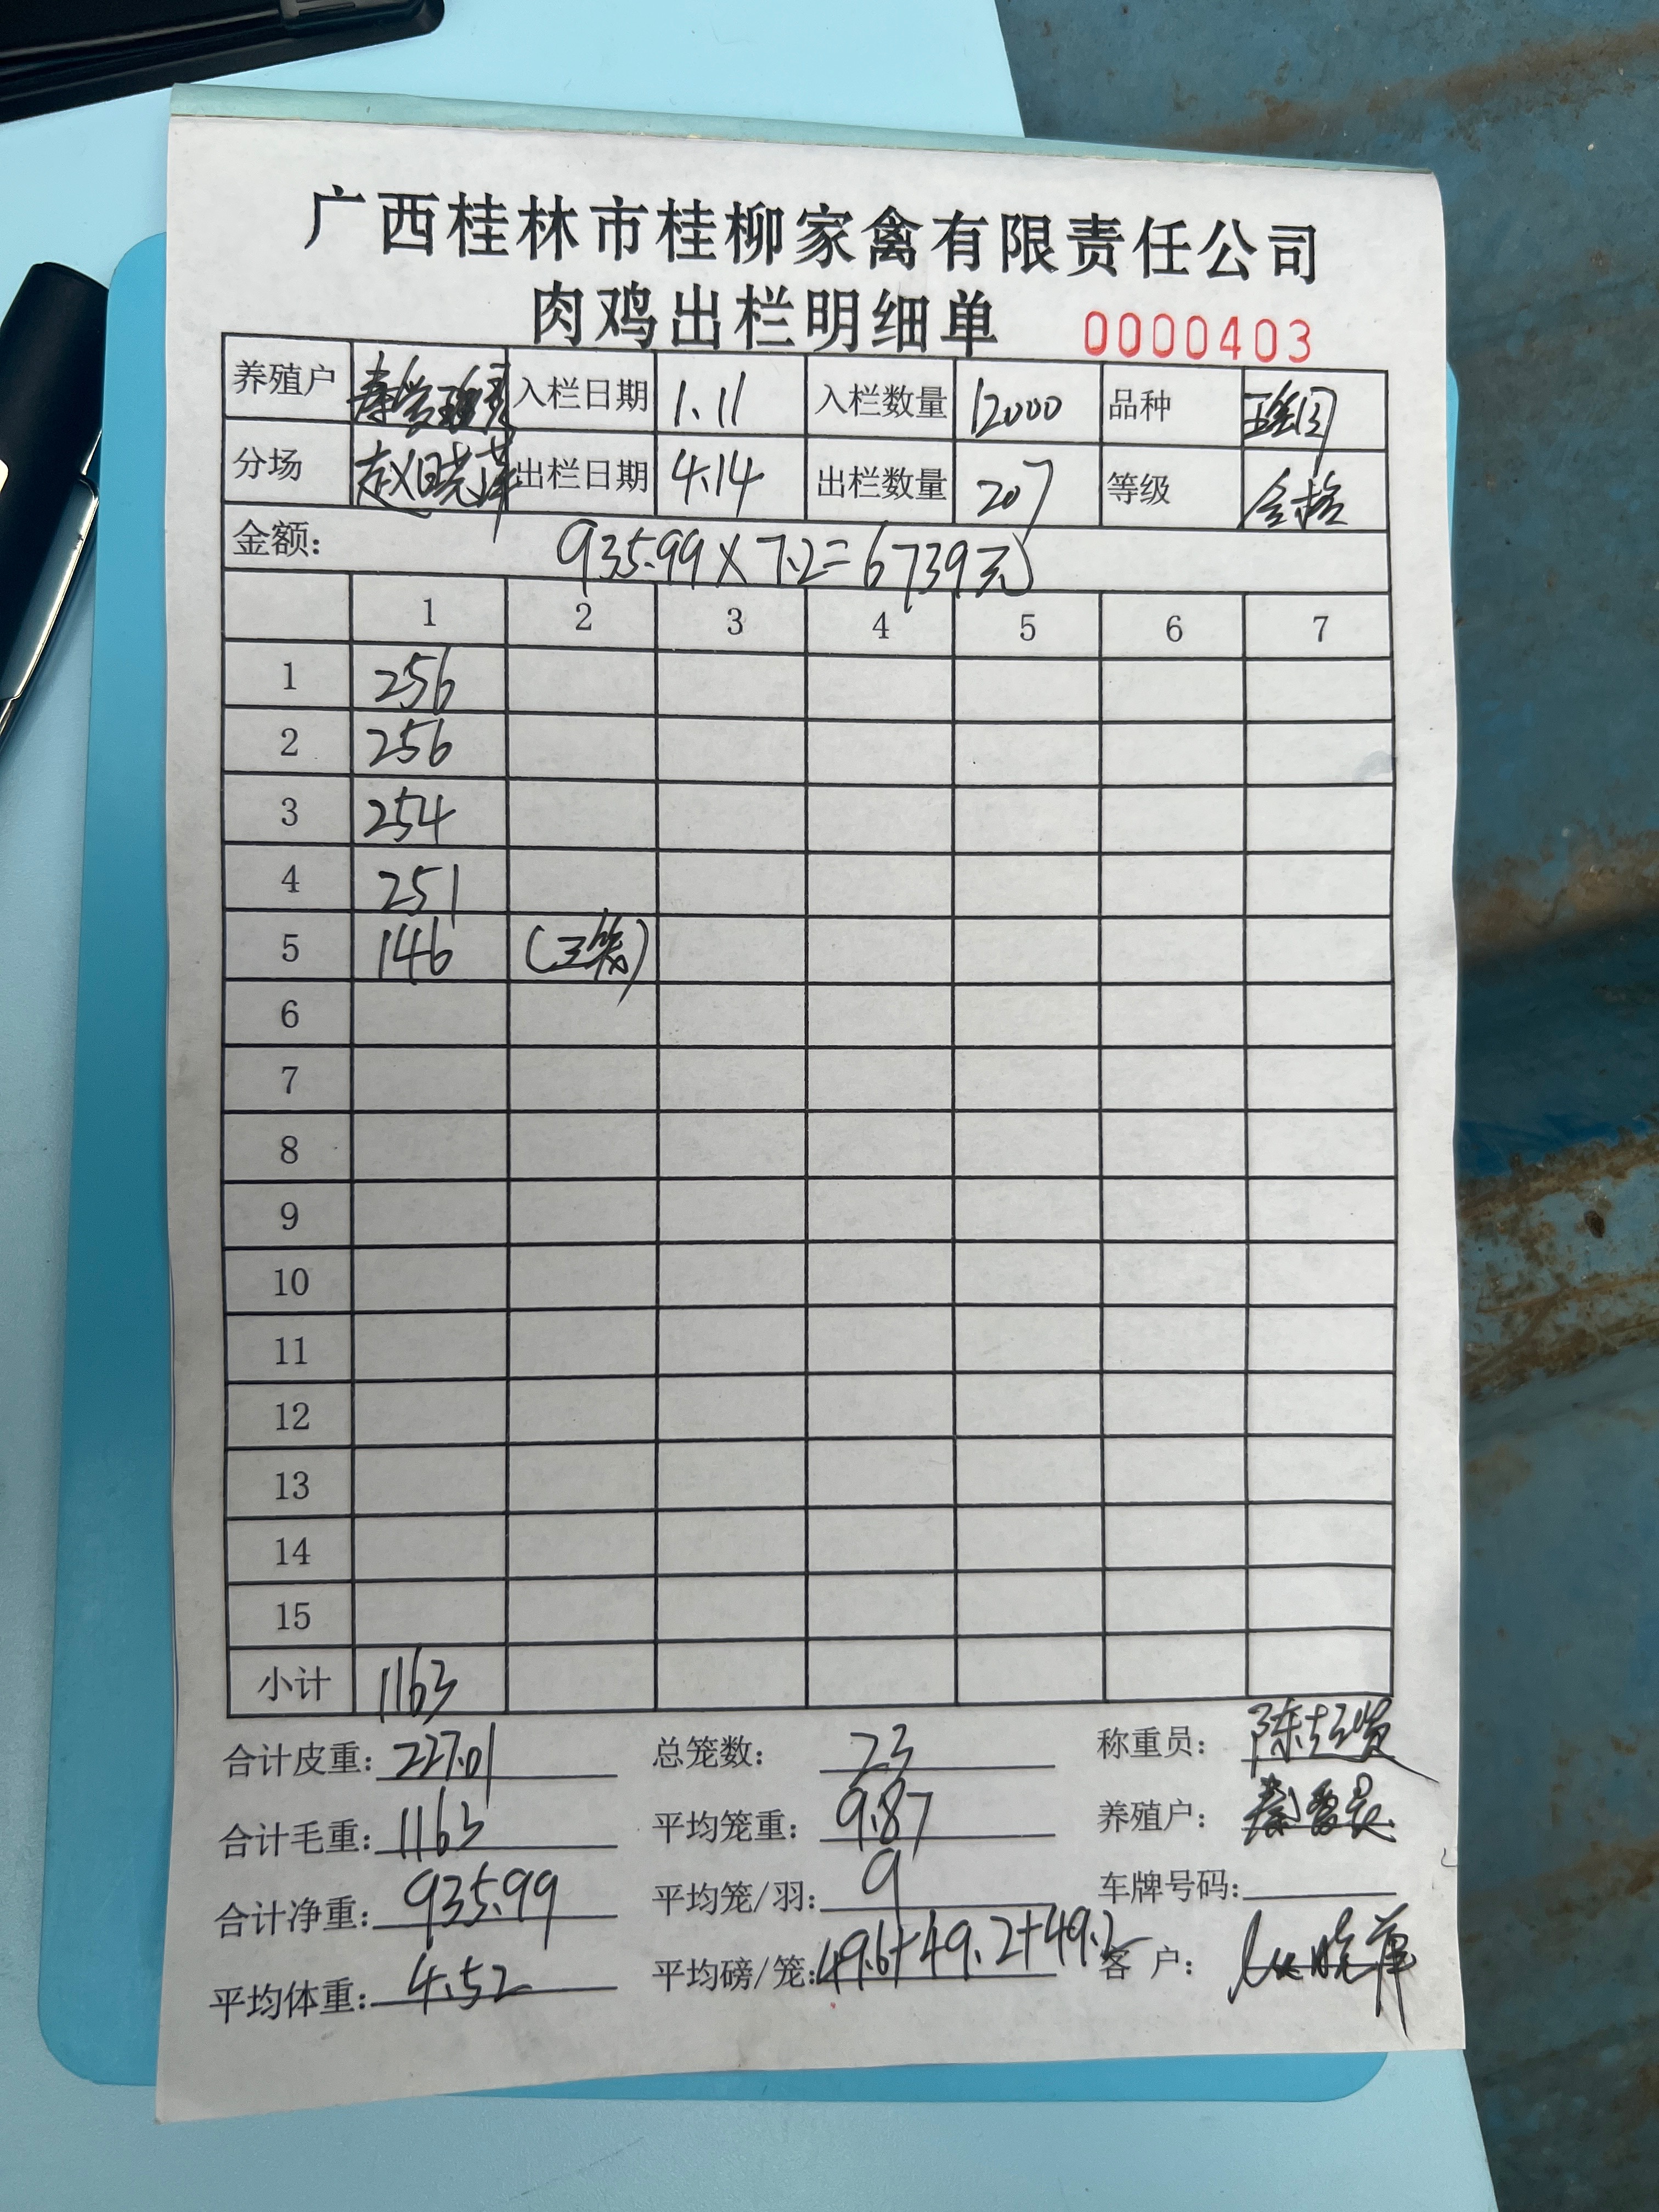 广西桂林市桂柳家禽有限责任公司
肉鸡出栏明细单 0000403
养殖户 入栏日期 1.11 入栏数量 12000 品种
分场 赵晓萍 出栏日期 4.14 出栏数量 207 等级 合格
金额: 935.99×7.2=6739元
1 2 3 4 5 6 7
1 256
2 256
3 254
4 251
5 146 (三笼)
6
7
8
9
10
11
12
13
14
15
小计 1163
合计皮重: 227.01 总笼数: 23 称重员:
合计毛重: 1163 平均笼重: 9.87 养殖户:
合计净重: 935.99 平均笼/羽: 9 车牌号码:
平均体重: 4.52 平均磅/笼: 49.6+49.2+49.2 客 户: 赵晓萍